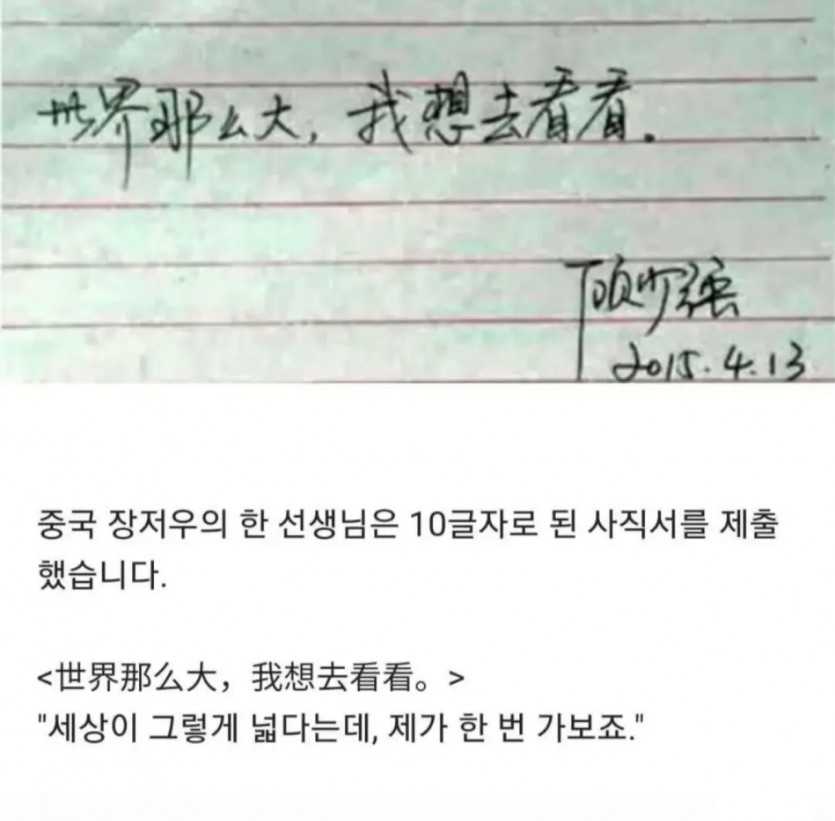 世界那么大，我想去看看.
顾少强
2015.4.13
중국 장저우의 한 선생님은 10글자로 된 사직서를 제출
했습니다.
<世界那么大，我想去看看。>
"세상이 그렇게 넓다는데, 제가 한 번 가보죠."